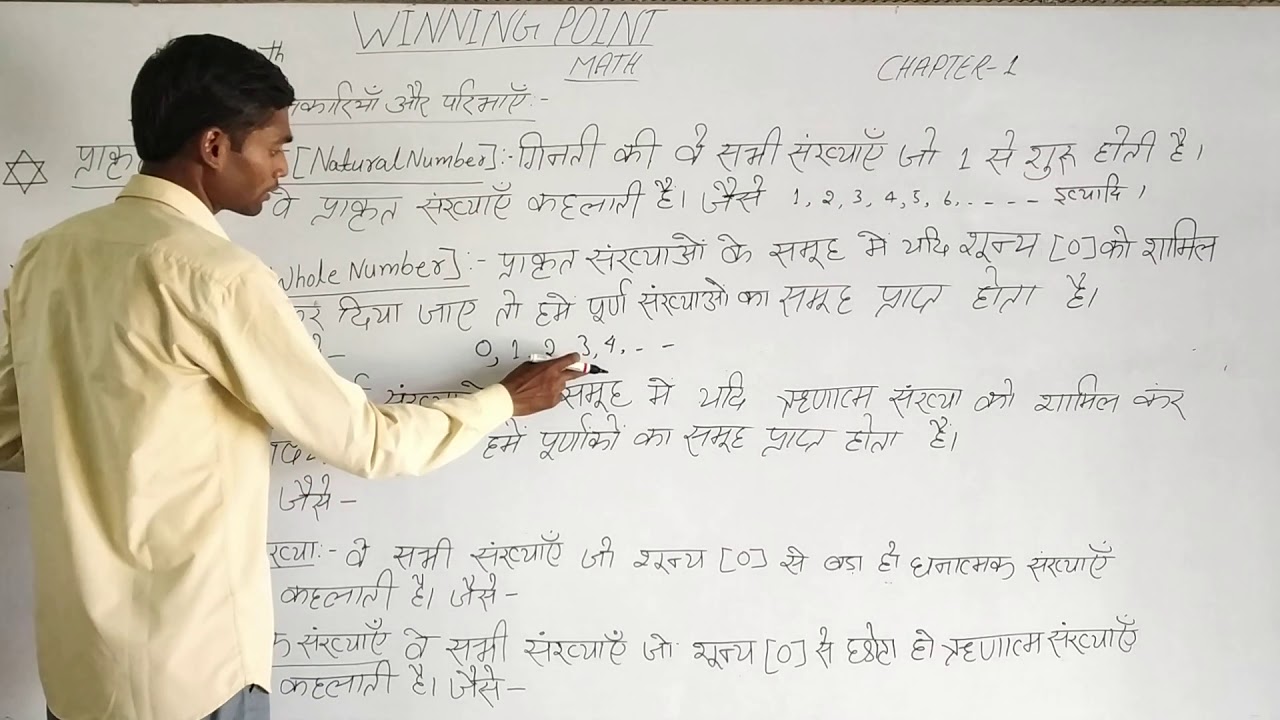 WINNING POINT
th
MATH
CHAPTER-1
और परिभाषाएँ:-
[Natural Number]:- गिनती की वे सभी संख्याएँ जो 1 से शुरू होती है।
वे प्राकृत संख्याएँ कहलाती है। जैसे 1, 2, 3, 4, 5, 6, - - - - इत्यादि।
Whole Number]:- प्राकृत संख्याओं के समूह में यदि शून्य [0] को शामिल
कर दिया जाए तो हमे पूर्ण संख्याओं का समूह प्राप्त होता है।
0, 1, 2, 3, 4, - -
समूह मे यदि ऋणात्म संख्या को शामिल कर
हमें पूर्णाकों का समूह प्राप्त होता है।
जैसे -
ख्या:- वे सभी संख्याएँ जो शून्य [0] से बड़ा हो धनात्मक संख्याएँ
कहलाती है। जैसे -
क संख्याएँ वे सभी संख्याएँ जो शून्य [0] से छोटा हो ऋणात्म संख्याएँ
कहलाती है। जैसे -